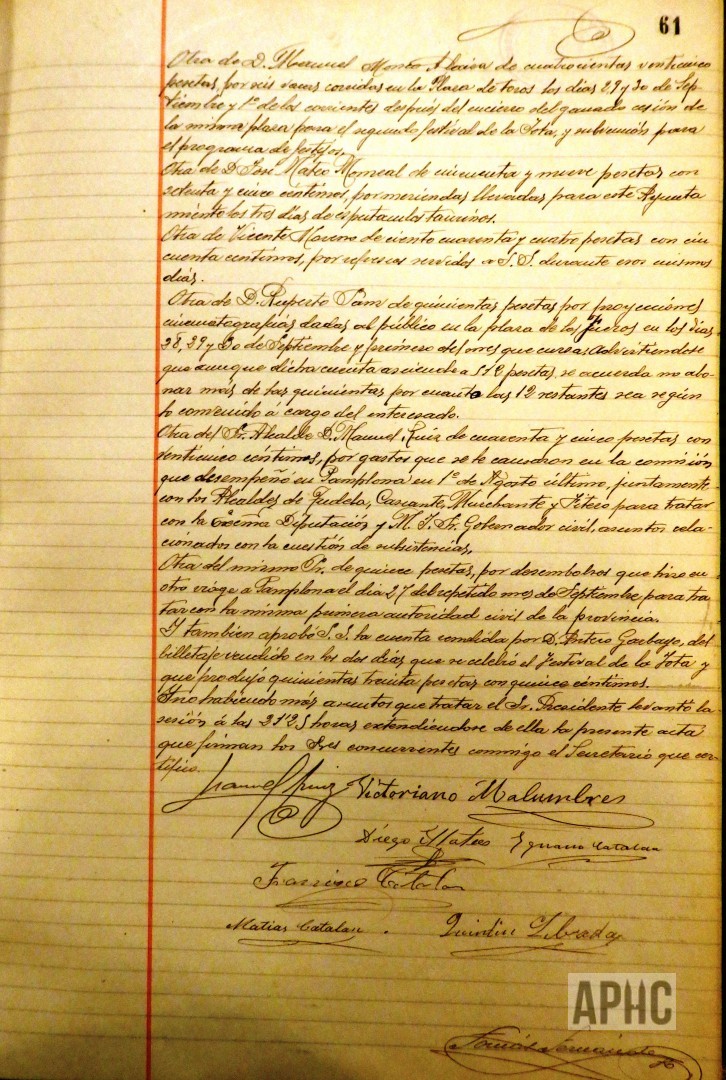 61
Otra de D. Manuel Monzo Alaiza de cuatrocientas venticinco
pesetas, por seis vacas corridas en la Plaza de toros los días 29 y 30 de Sep-
tiembre y 1º de los corrientes después del encierro del ganado cesión de
la misma plaza para el segundo festival de la Jota, y subvención para
el programa de festejos,
Otra de D. José Mateo Monreal de cincuenta y nueve pesetas con
setenta y cinco céntimos, por meriendas llevadas para este Ayunta
miento los tres días de espectaculos taurinos.
Otra de Vicente Moreno de ciento cuarenta y cuatro pesetas con cin
cuenta centimos, por refrescos servidos a S.S. durante esos mismos
días.
Otra de D. Ruperto de quinientas pesetas por proyecciones
cinematografias dadas al público en la plaza de los Fueros en los días
28, 29 y 30 de Septiembre y primero del mes que cursa: advirtiendose
que aunque dicha cuenta asciende a 512 pesetas, se acuerda no abo-
nar más de las quinientas por cuanto las 12 restantes sea según
lo convenido á cargo del interesado.
Otra del Sr. Alcalde D. Manuel Ruiz de cuarenta y cinco pesetas con
venticinco céntimos, por gastos que se le causaron en la comisión
que desempeño en Pamplona en 1º de Agosto último, juntamente
con los Alcaldes de Tudela, Cascante, Murchante y Fitero para tratar
con la Excma Diputación y M. I. Sr. Gobernador civil, asuntos rela-
cionados con la cuestión de subsistencias,
Otra del mismo Sr. de quince pesetas, por desembolsos que hizo en
otro viage a Pamplona el dia 27 del repetido mes de Septiembre para tra
tar con la misma primera autoridad civil de la provincia.
Y tambien aprobó S.S. la cuenta rendida por D. Antero Garbayo, del
billetaje vendido en los dos días que se celebró el Festival de la Jota y
que produjo quinientas treinta pesetas con quince céntimos.
Y no habiendo más asuntos que tratar el Sr. Presidente levantó la
sesión á las 21'25 horas extendiendose de ella la presente acta
que firman los Sres concurrentes conmigo el Secretario que cer-
tifico.
Manuel Ruiz Victoriano Malumbres
Diego Mateo Ygnacio Catalan
Francisco Catalan
Matias Catalan. Quintin
APHC